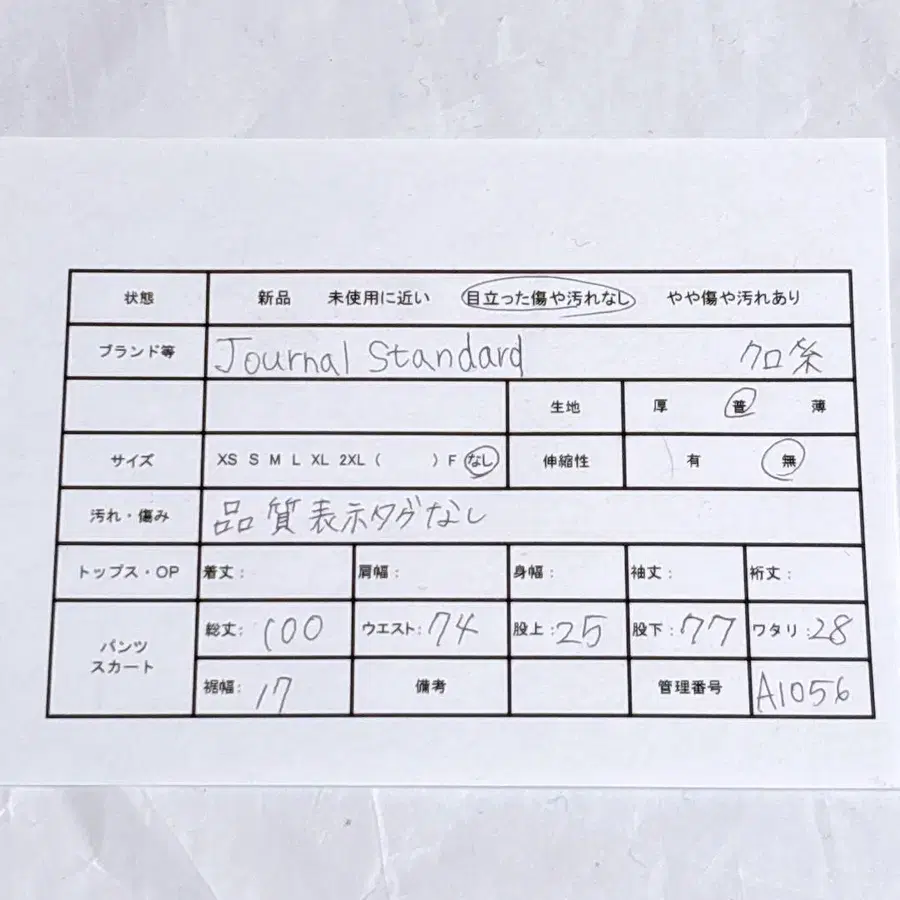 状態 新品 未使用に近い 目立った傷や汚れなし やや傷や汚れあり
ブランド等 Journal Standard クロ系
生地 厚 普 薄
サイズ XS S M L XL 2XL ( ) F なし 伸縮性 有 無
汚れ・傷み 品質表示タグなし
トップス・OP 着丈: 肩幅: 身幅: 袖丈: 裄丈:
パンツ スカート 総丈: 100 ウエスト: 74 股上: 25 股下: 77 ワタリ: 28
裾幅: 17 備考 管理番号 A1056